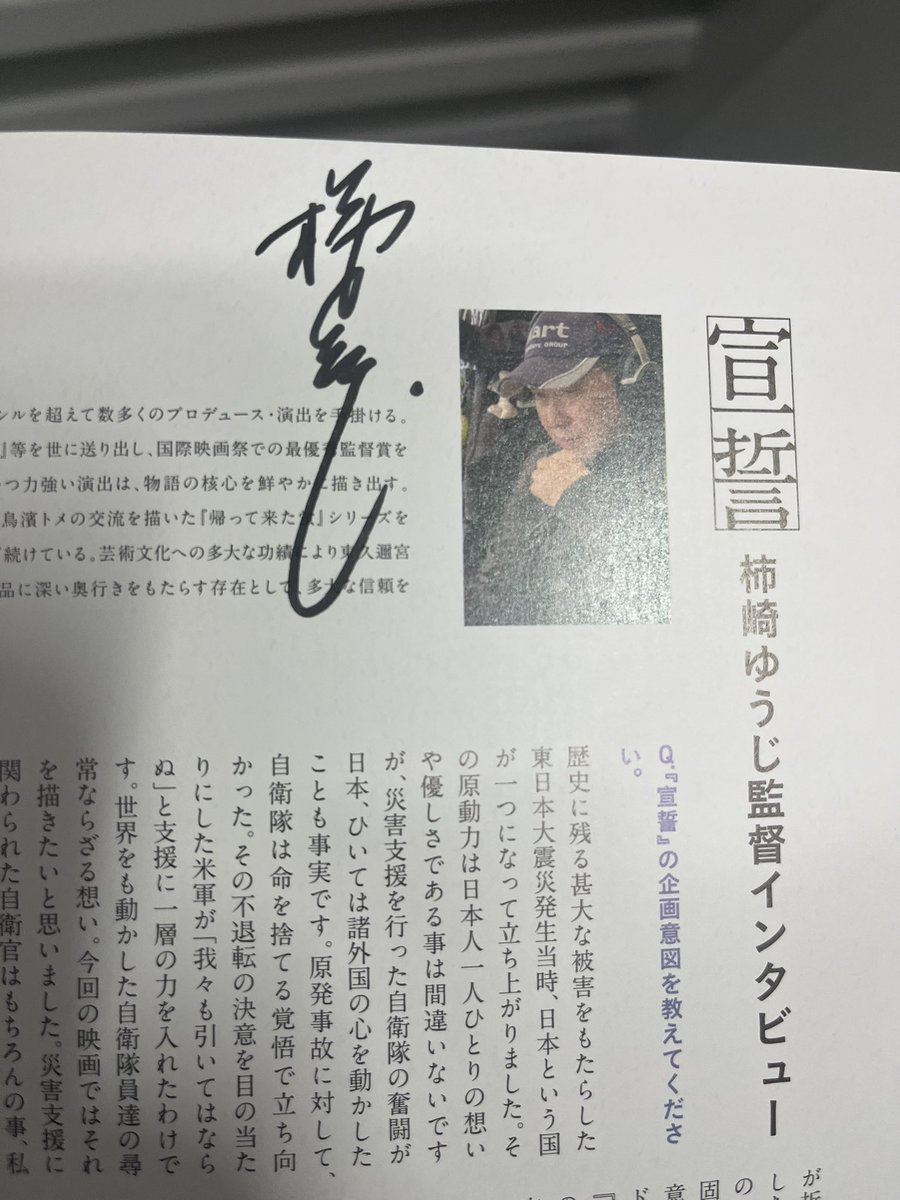 宣誓
柿崎ゆうじ監督インタビュー
Q.『宣誓』の企画意図を教えてくださ
い。
歴史に残る甚大な被害をもたらした
東日本大震災発生当時、日本という国
が一つになって立ち上がりました。そ
の原動力は日本人一人ひとりの想い
や優しさである事は間違いないです
が、災害支援を行った自衛隊の奮闘が
日本、ひいては諸外国の心を動かした
ことも事実です。原発事故に対して、
自衛隊は命を捨てる覚悟で立ち向
かった。その不退転の決意を目の当た
りにした米軍が「我々も引いてはなら
ぬ」と支援に一層の力を入れたわけで
す。世界をも動かした自衛隊員達の尋
常ならざる想い。今回の映画ではそれ
を描きたいと思いました。災害支援に
関わられた自衛官はもちろんの事、私
art
GROUP
シルを超えて数多くのプロデュース・演出を手掛ける。
』等を世に送り出し、国際映画祭での最優秀監督賞を
つ力強い演出は、物語の核心を鮮やかに描き出す。
鳥濱トメの交流を描いた『帰って来た蛍』シリーズを
続けている。芸術文化への多大な功績により東久邇宮
品に深い奥行きをもたらす存在として、多大な信頼を